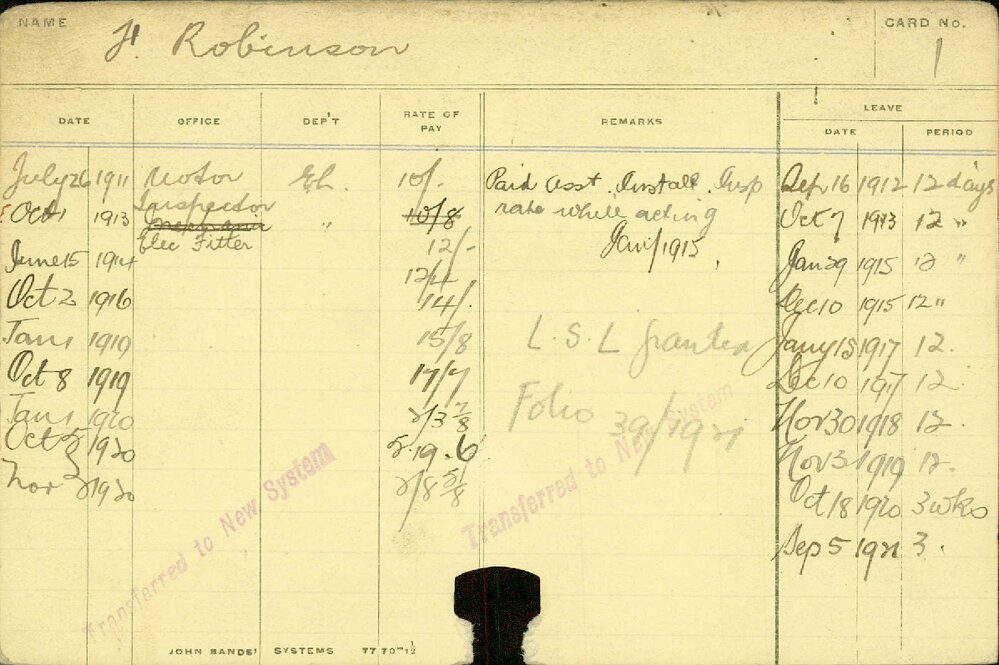 NAME H. Robinson CARD No. 1
DATE OFFICE DEP'T RATE OF PAY REMARKS LEAVE
DATE PERIOD
July 26 1911 Motor El. 10/- Paid Asst. Install. Insp Sep 16 1912 12 days
Inspector
Oct 1 1913 " 10/8 rate while acting Oct 7 1913 12 "
Elec Fitter 12/- Jany 1915
June 15 1914 Jan 29 1915 12 "
12/4
Oct 2 1916 14/- Dec 10 1915 12 "
Jan 1 1919 15/8 L.S.L granted Jany 15 1917 12.
Oct 8 1919 17/7 Dec 10 1917 12.
Jan 1 1920 2/3 7/8 Folio 39/1921 Nov 30 1918 12.
Oct 1920 5.19.6 Nov 3 1919 12.
Nov 1920 2/8 5/8 Oct 18 1920 3 wks
Sep 5 1921 3.
Transferred to New System
Transferred to New System
JOHN SANDS' SYSTEMS